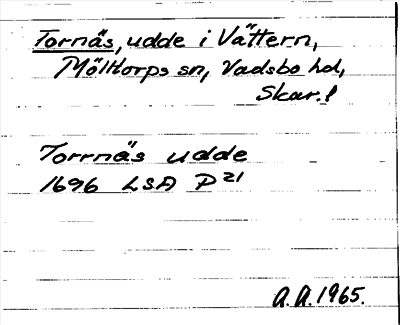 Tornäs, udde i Vättern,
Mölltorps sn, Vadsbo hd,
Skar. l
Torrnäs udde
1696 LSA P 21
A.A. 1965.